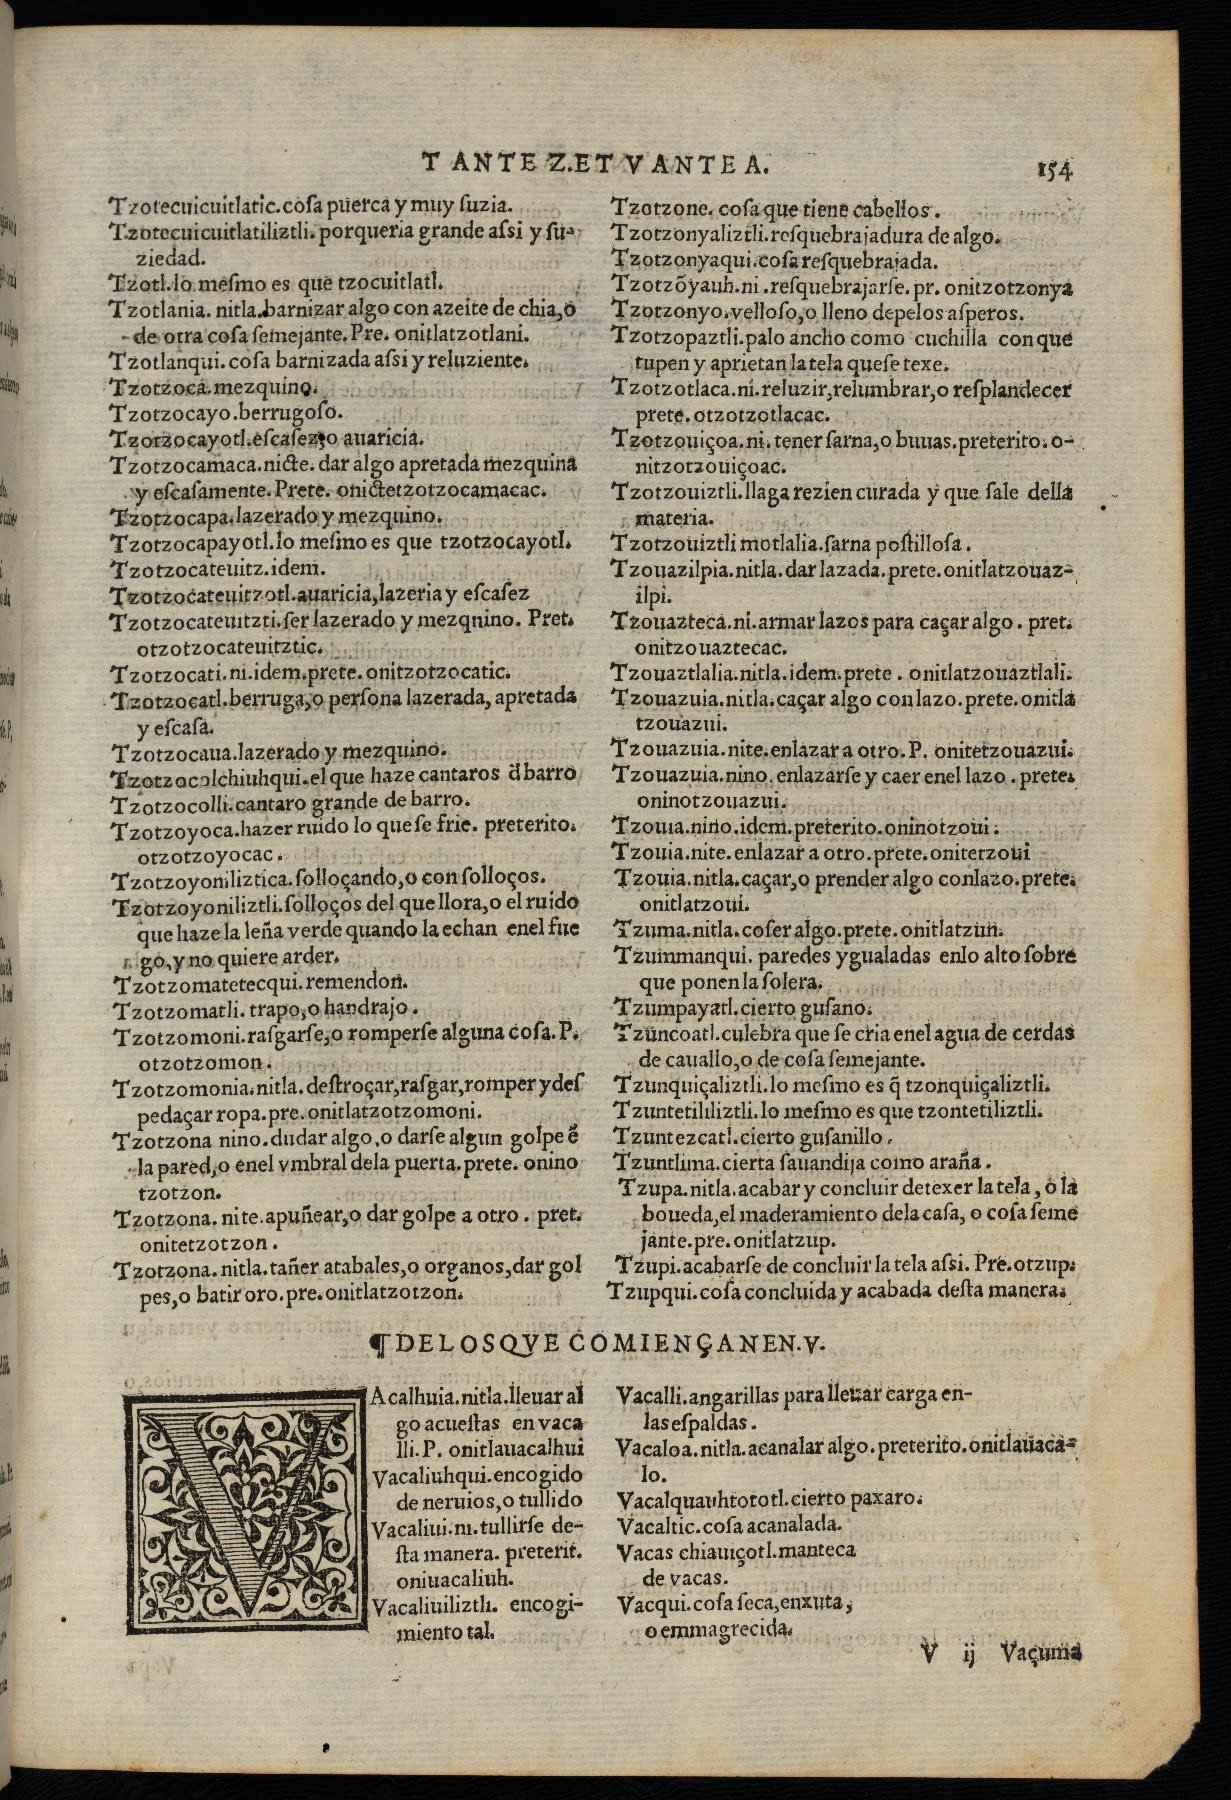 T ANTE Z. ET V ANTE A.
154
Tzotecuicuitlatic. cosa puerca y muy suzia.
Tzotecuicuitlatiliztli. porqueria grande assi y su-
ziedad.
Tzotl. lo mesmo es que tzocuitlatl.
Tzotlania. nitla. barnizar algo con azeite de chia, o
de otra cosa semejante. Pre. onitlatzotlani.
Tzotlanqui. cosa barnizada assi y reluziente.
Tzotzoca. mezquino.
Tzotzocayo. berrugoso.
Tzotzocayotl. escasez, o auaricia.
Tzotzocamaca. nicte. dar algo apretada mezquina
y escasamente. Prete. onictetzotzocamacac.
Tzotzocapa. lazerado y mezquino.
Tzotzocapayotl. lo mesmo es que tzotzocayotl.
Tzotzocateuitz. idem.
Tzotzocateuitzotl. auaricia, lazeria y escasez
Tzotzocateuitzti. ser lazerado y mezqnino. Pret.
otzotzocateuitztic.
Tzotzocati. ni. idem. prete. onitzotzocatic.
Tzotzocatl. berruga, o persona lazerada, apretada
y escasa.
Tzotzocaua. lazerado y mezquino.
Tzotzocolchiuhqui. el que haze cantaros d̃ barro
Tzotzocolli. cantaro grande de barro.
Tzotzoyoca. hazer ruido lo que se frie. preterito.
otzotzoyocac.
Tzotzoyoniliztica. solloçando, o con solloços.
Tzotzoyoniliztli. solloços del que llora, o el ruido
que haze la leña verde quando la echan enel fue
go, y no quiere arder.
Tzotzomatetecqui. remendon.
Tzotzomatli. trapo, o handrajo.
Tzotzomoni. rasgarse, o romperse alguna cosa. P.
otzotzomon.
Tzotzomonia. nitla. destroçar, rasgar, romper y des
pedaçar ropa. pre. onitlatzotzomoni.
Tzotzona nino. dudar algo, o darse algun golpe ẽ
la pared, o enel vmbral dela puerta. prete. onino
tzotzon.
Tzotzona. nite. apuñear, o dar golpe a otro. pret.
onitetzotzon.
Tzotzona. nitla. tañer atabales, o organos, dar gol
pes, o batir oro. pre. onitlatzotzon.
Tzotzone. cosa que tiene cabellos.
Tzotzonyaliztli. resquebrajadura de algo.
Tzotzonyaqui. cosa resquebrajada.
Tzotzõyauh. ni. resquebrajarse. pr. onitzotzonya
Tzotzonyo. velloso, o lleno depelos asperos.
Tzotzopaztli. palo ancho como cuchilla conque
tupen y aprietan la tela quese texe.
Tzotzotlaca. ni. reluzir, relumbrar, o resplandecer
prete. otzotzotlacac.
Tzotzouiçoa. ni. tener sarna, o buuas. preterito. o-
nitzotzouiçoac.
Tzotzouiztli. llaga rezien curada y que sale della
materia.
Tzotzouiztli motlalia. sarna postillosa.
Tzouazilpia. nitla. dar lazada. prete. onitlatzouaz-
ilpi.
Tzouazteca. ni. armar lazos para caçar algo. pret.
onitzouaztecac.
Tzouaztlalia. nitla. idem. prete. onitlatzouaztlali.
Tzouazuia. nitla. caçar algo con lazo. prete. onitla
tzouazui.
Tzouazuia. nite. enlazar a otro. P. onitetzouazui.
Tzouazuia. nino. enlazarse y caer enel lazo. prete.
oninotzouazui.
Tzouia. nino. idem. preterito. oninotzoui.
Tzouia. nite. enlazar a otro. prete. onitetzoui
Tzouia. nitla. caçar, o prender algo conlazo. prete.
onitlatzoui.
Tzuma. nitla. coser algo. prete. onitlatzun.
Tzummanqui. paredes ygualadas enlo alto sobre
que ponen la solera.
Tzumpayatl. cierto gusano.
Tzuncoatl. culebra que se cria enel agua de cerdas
de cauallo, o de cosa semejante.
Tzunquiçaliztli. lo mesmo es q̃ tzonquiçaliztli.
Tzuntetililiztli. lo mesmo es que tzontetiliztli.
Tzuntezcatl. cierto gusanillo.
Tzuntlima. cierta sauandija como araña.
Tzupa. nitla. acabar y concluir detexer la tela, o la
boueda, el maderamiento dela casa, o cosa seme
jante. pre. onitlatzup.
Tzupi. acabarse de concluir la tela assi. Pre. otzup.
Tzupqui. cosa concluida y acabada desta manera.
¶ DE LOS QVE COMIENÇAN EN. V.
VAcalhuia. nitla. lleuar al
go acuestas en vaca
lli. P. onitlauacalhui
Vacaliuhqui. encogido
de neruios, o tullido
Vacaliui. ni. tullirse de-
sta manera. preterit.
oniuacaliuh.
Vacaliuiliztli. encogi-
miento tal.
Vacalli. angarillas para lleuar carga en-
las espaldas.
Vacaloa. nitla. acanalar algo. preterito. onitlauaca-
lo.
Vacalquauhtototl. cierto paxaro.
Vacaltic. cosa acanalada.
Vacas chiauiçotl. manteca
de vacas.
Vacqui. cosa seca, enxuta,
o emmagrecida.
V ij Vaçuma